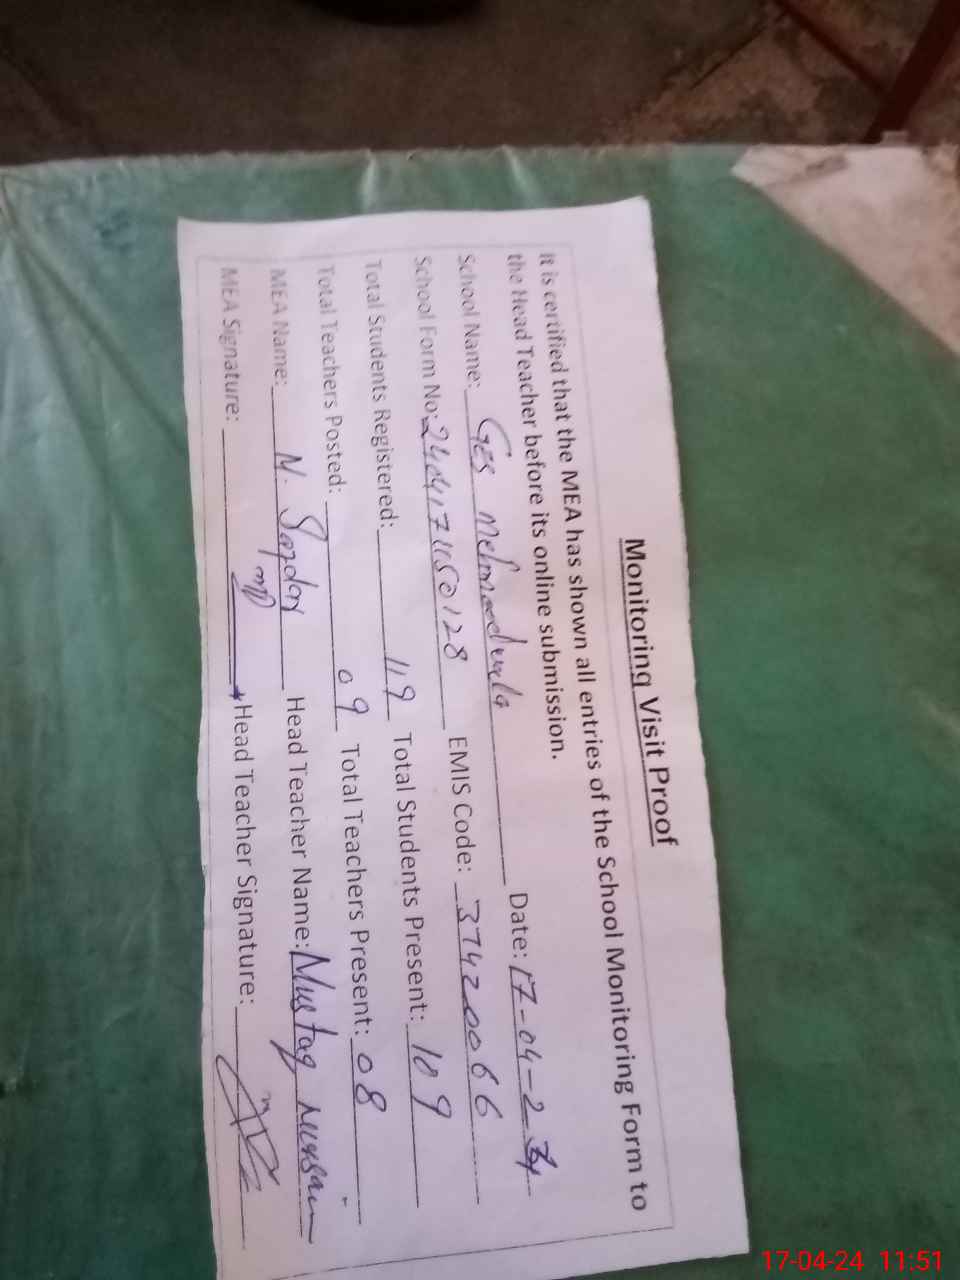 Monitoring Visit Proof
It is certified that the MEA has shown all entries of the School Monitoring Form to
the Head Teacher before its online submission.
School Name: GES Date: 17-04-24
School Form No: EMIS Code: 37420066
Total Students Registered: 119 Total Students Present: 109
Total Teachers Posted: 09 Total Teachers Present: 08
MEA Name: Head Teacher Name: Mustaq Hussain
MEA Signature: Head Teacher Signature:
17-04-24 11:51